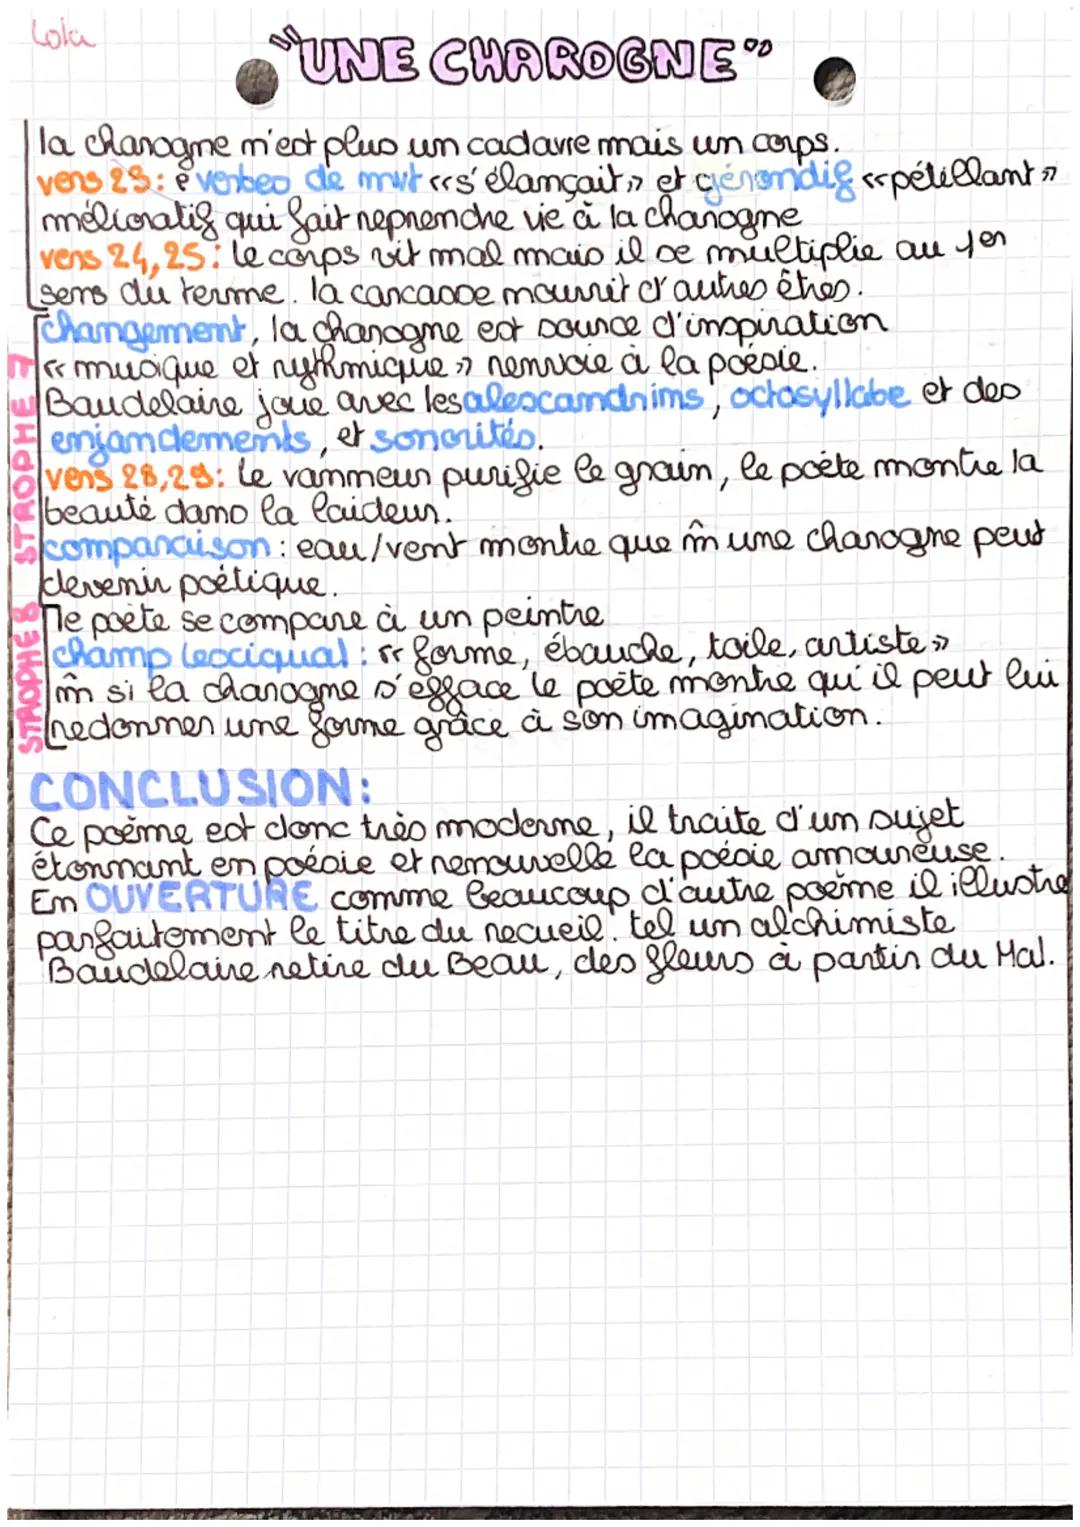 Lola
"UNE CHAROGNE"
la charogne n'est plus un cadavre mais un corps.
vers 23: verbes de mvt «s'élançait» et gérondif «pétillant»
mélioratif qui fait reprendre vie à la charogne
vers 24, 25: le corps vit mal mais il se multiplie au 1er
sens du terme. la carcasse nourrit d'autres êtres.
STROPHE 7
changement, la charogne est source d'inspiration
«musique et rythmique» renvoie à la poésie.
Baudelaire joue avec les alexcandrins, octosyllabe et des
enjambements, et sonorités.
vers 28,29: le vanneur purifie le grain, le poète montre la
beauté dans la laideur.
comparaison: eau/vent montre que m̂ une charogne peut
devenir poétique.
STROPHE 8
le poète se compare à un peintre
champ lexciqual: «forme, ébauche, toile, artiste»
m̂ si la charogne s'efface le poète montre qu'il peut lui
redonner une forme grâce à son imagination.
CONCLUSION:
Ce poème est donc très moderne, il traite d'un sujet
étonnant en poésie et renouvelle la poésie amoureuse.
En OUVERTURE comme beaucoup d'autre poème il illustre
parfaitement le titre du recueil. tel un alchimiste
Baudelaire retire du Beau, des fleurs à partir du Mal.